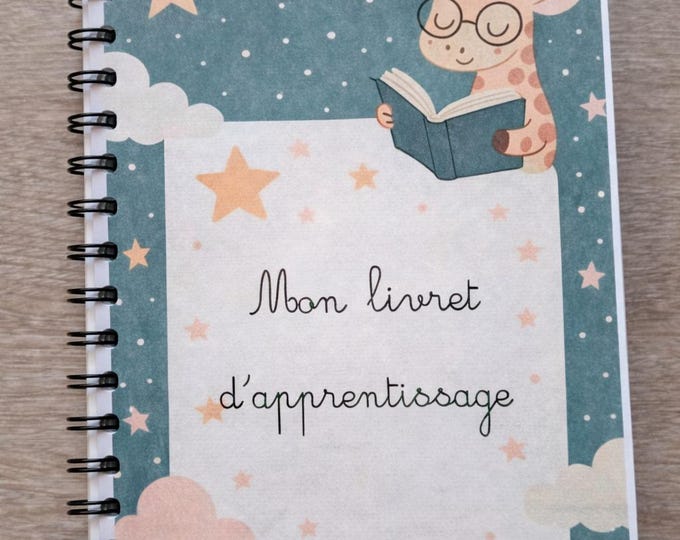 Mon livret
d'apprentissage